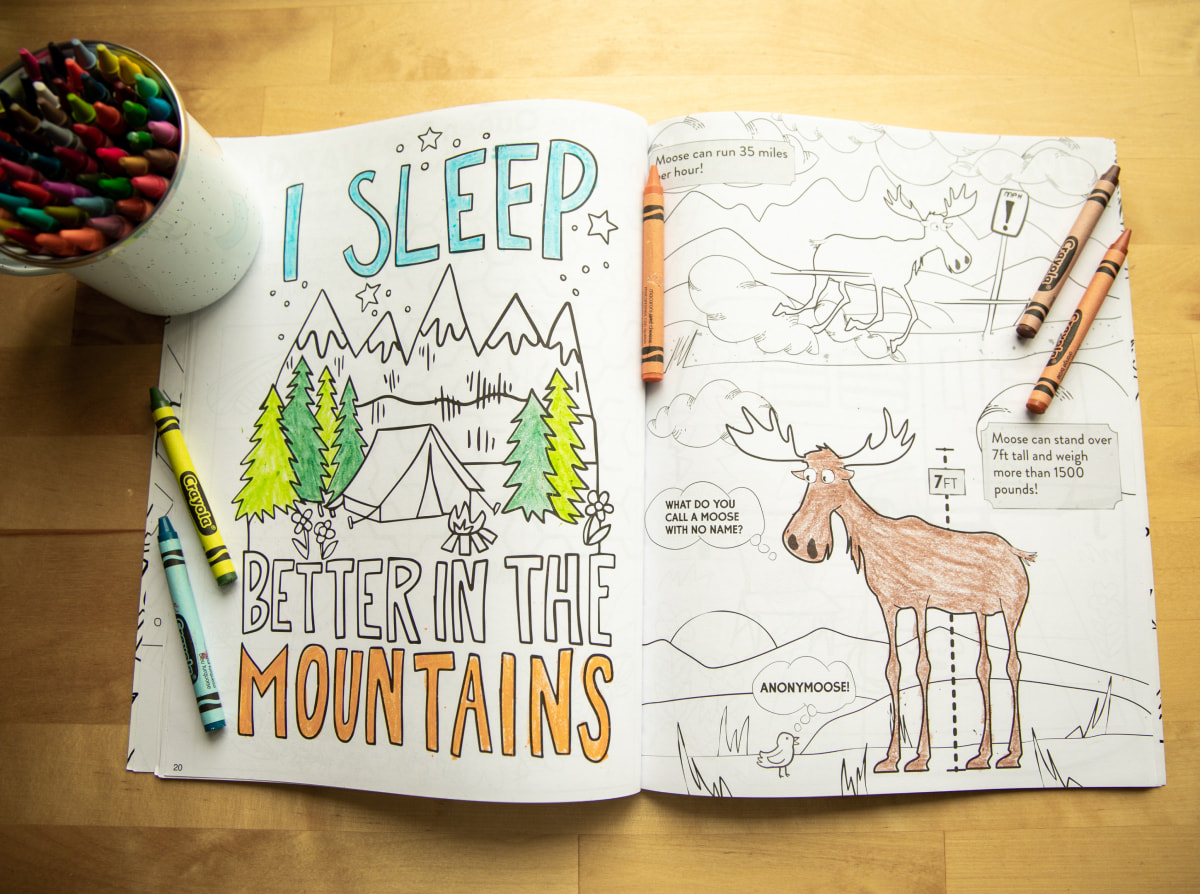 I SLEEP
BETTER IN THE
MOUNTAINS
20
Moose can run 35 miles
per hour!
MPH
!
WHAT DO YOU
CALL A MOOSE
WITH NO NAME?
7FT
Moose can stand over
7ft tall and weigh
more than 1500
pounds!
ANONYMOOSE!
Crayola
Crayola
Crayola
Crayola